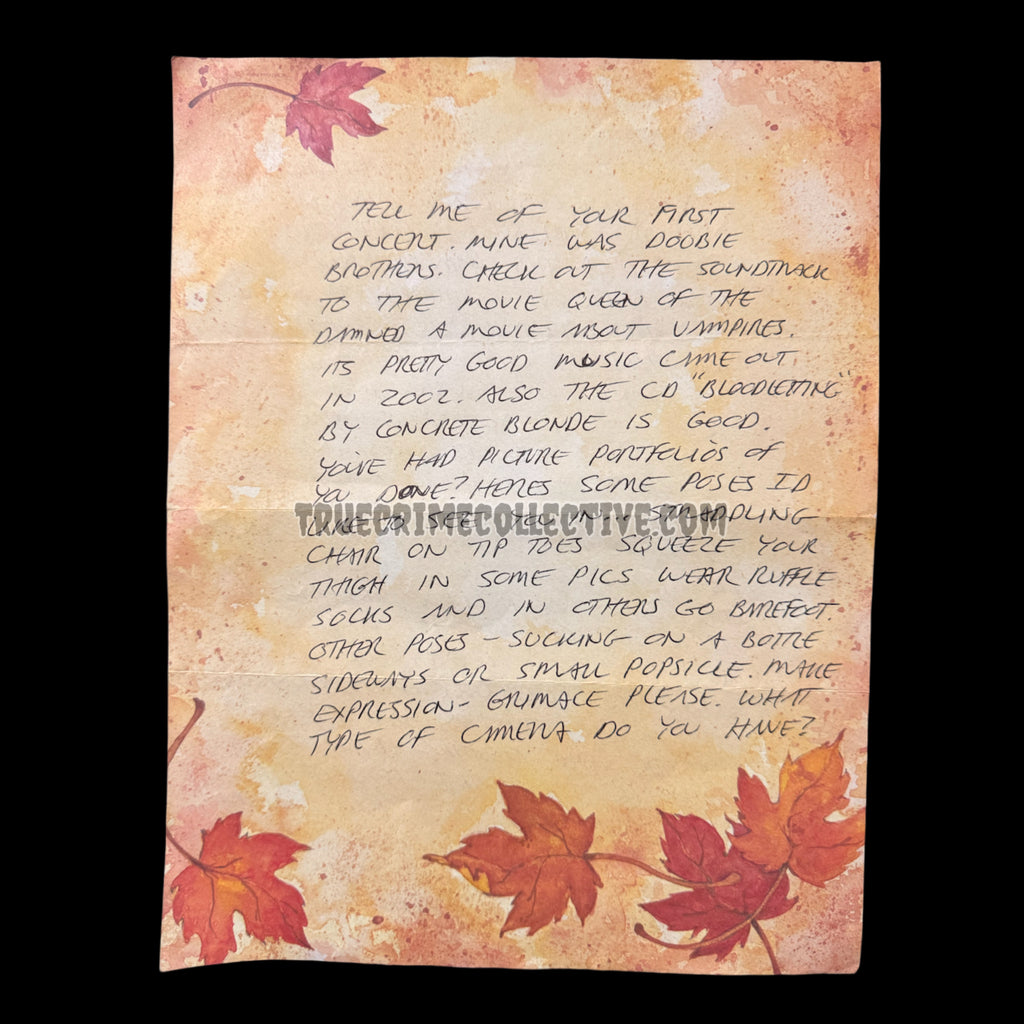 TELL ME OF YOUR FIRST
CONCERT. MINE WAS DOOBIE
BROTHERS. CHECK OUT THE SOUNDTRACK
TO THE MOVIE QUEEN OF THE
DAMNED A MOVIE ABOUT VAMPIRES.
ITS PRETTY GOOD MUSIC CAME OUT
IN 2002. ALSO THE CD "BLOODLETTING"
BY CONCRETE BLONDE IS GOOD.
YOU'VE HAD PICTURE PORTFOLIO'S OF
YOU DONE? HERES SOME POSES ID
LIKE TO SEE YOU IN... STRADDLING
TRUECRIMECOLLECTIVE.COM
CHAIR ON TIP TOES SQUEEZE YOUR
THIGH IN SOME PICS WEAR RUFFLE
SOCKS AND IN OTHERS GO BAREFOOT.
OTHER POSES - SUCKING ON A BOTTLE
SIDEWAYS OR SMALL POPSICLE. MAKE
EXPRESSION - GRIMACE PLEASE. WHAT
TYPE OF CAMERA DO YOU HAVE?